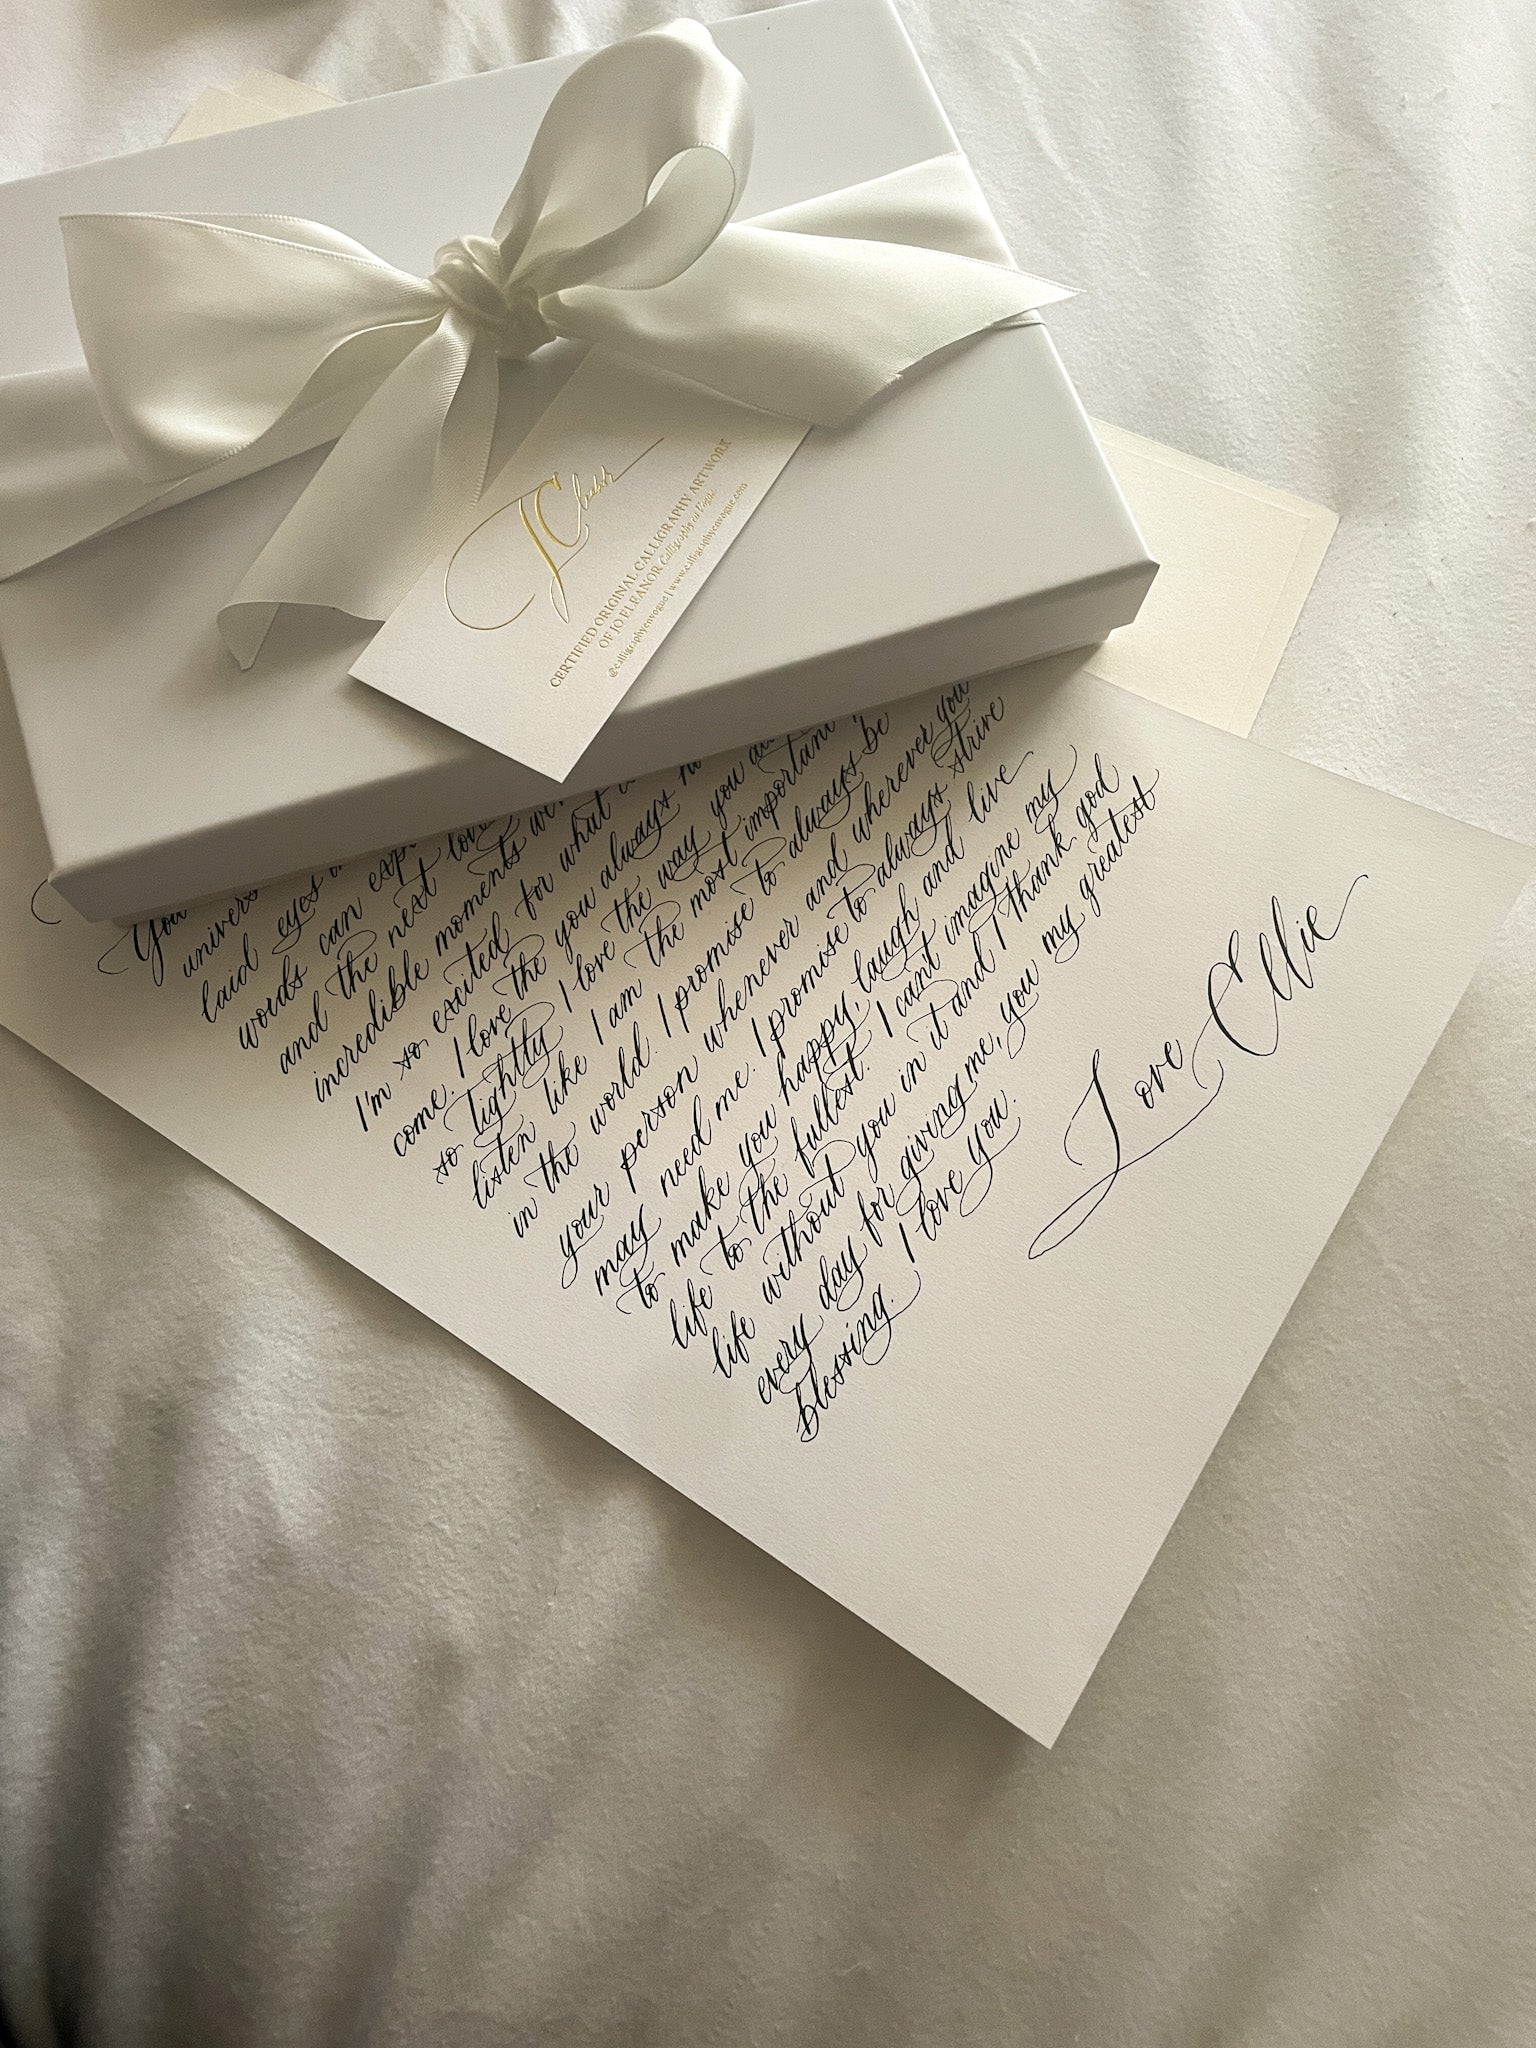 CERTIFIED ORIGINAL CALLIGRAPHY ARTWORK
OF JO ELEANOR Calligraphy en Vogue
@calligraphyenvogue | www.calligraphyenvogue.com
You
univers
laid eyes
words can exp
and the next love
incredible moments
I'm so excited for what
come. I love the you always
so tightly. I love the way you
listen like I am the most important
in the world. I promise to always be
your person whenever and wherever you
may need me. I promise to always strive
to make you happy, laugh and live
life to the fullest. I can't imagine my
life without you in it and I thank god
every day for giving me, you my greatest
blessing. I love you.
Love Ellie